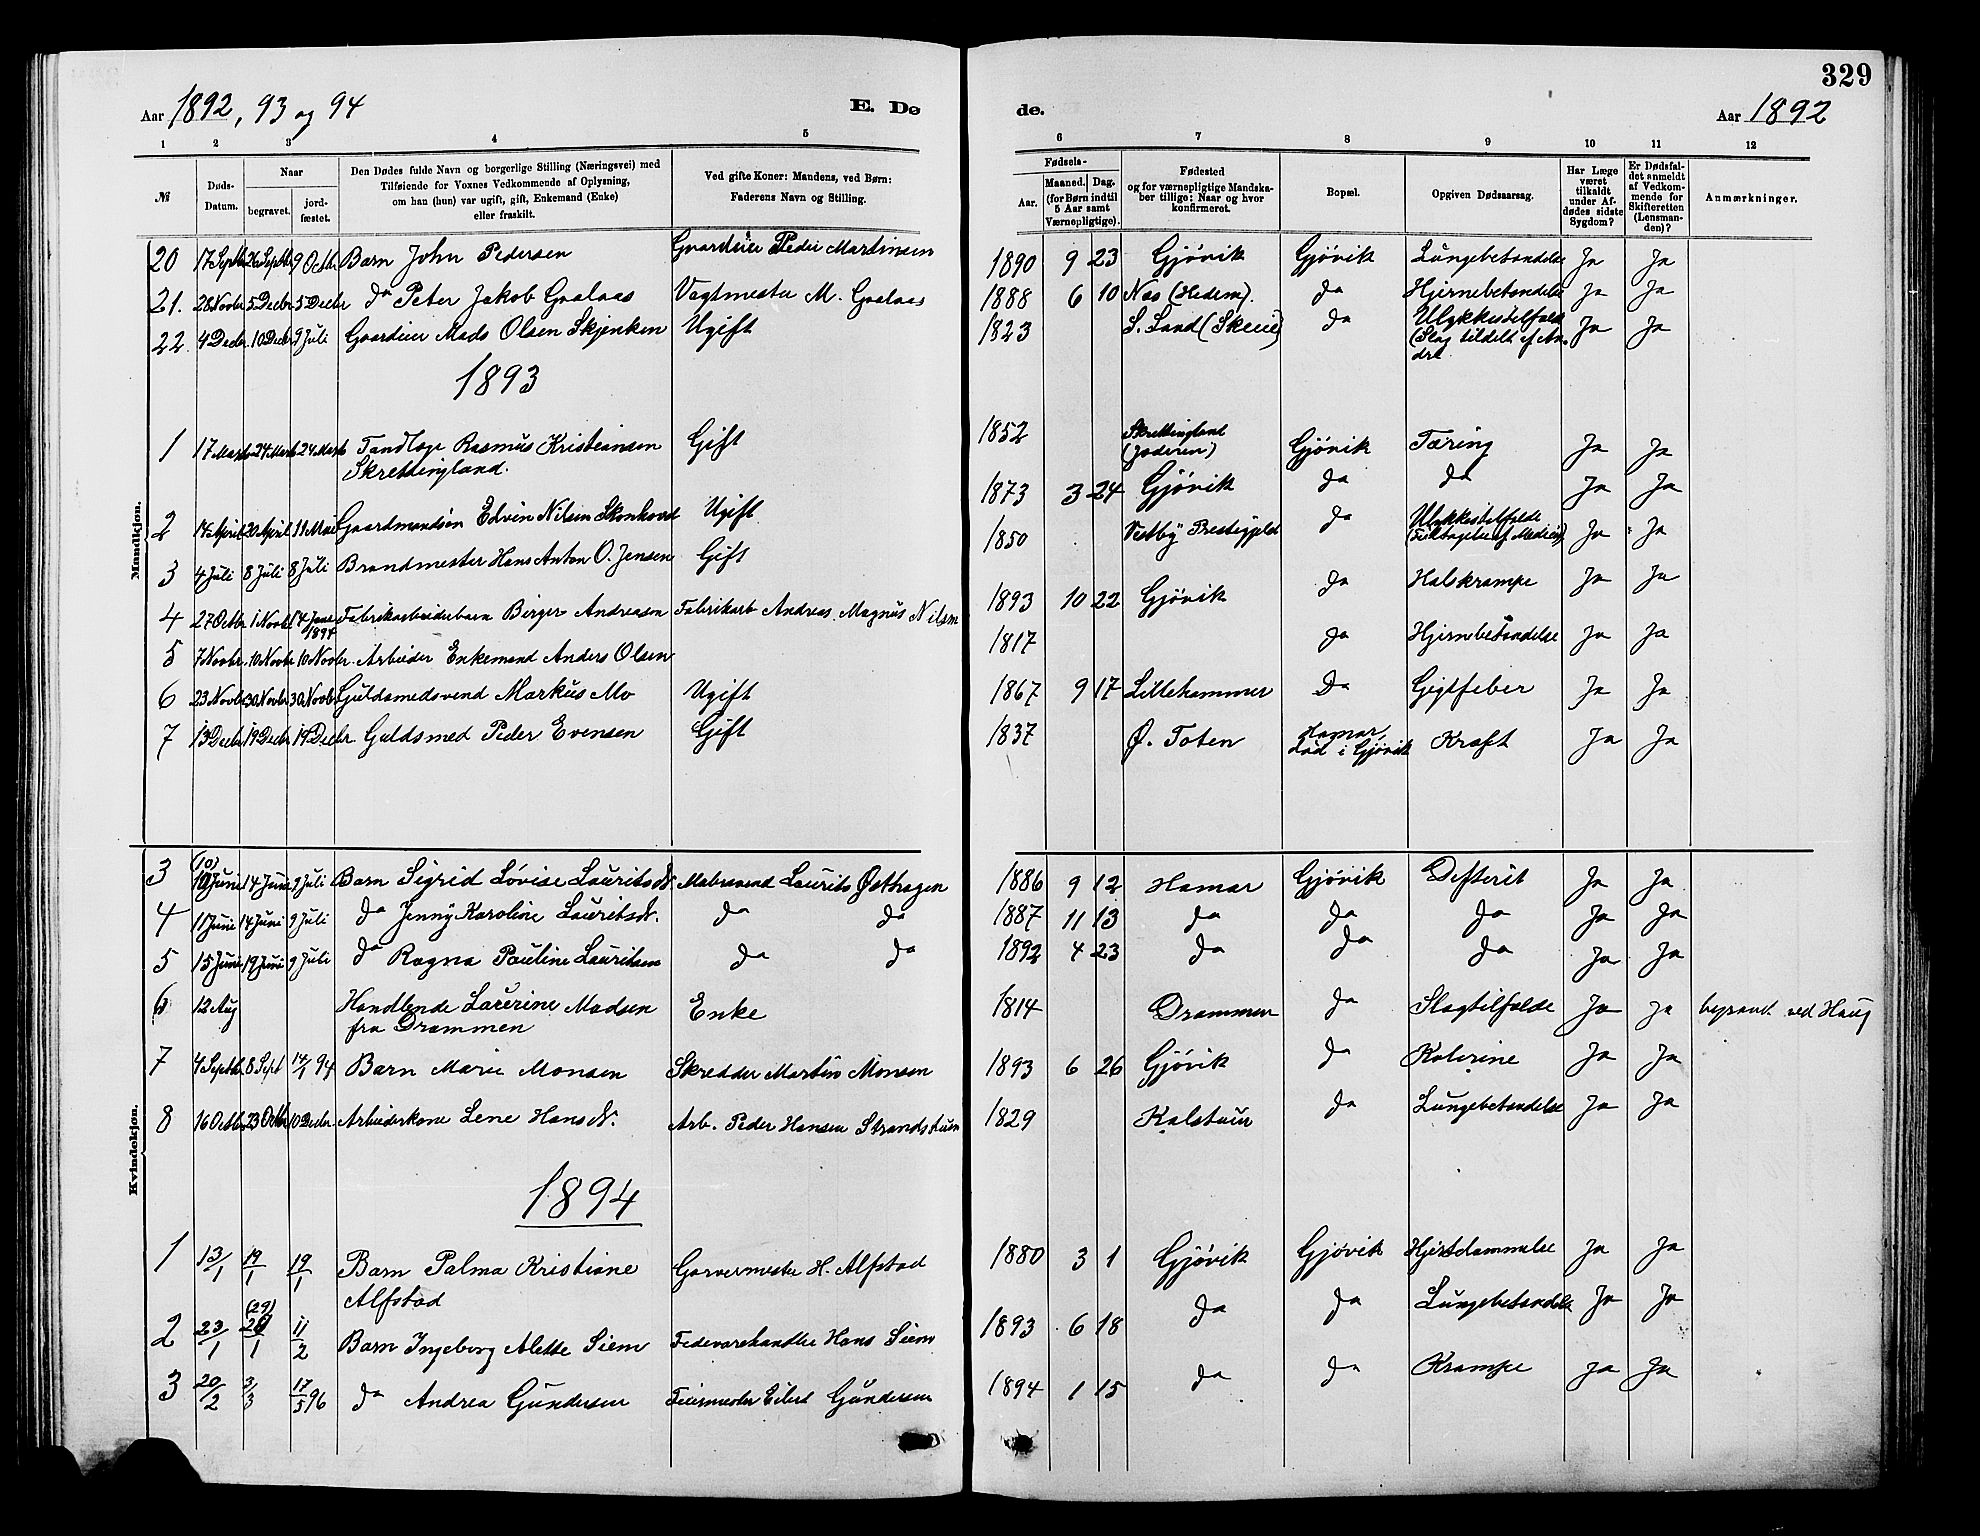 329
Aar 1892, 93 og 94 E. Dø
de. Aar 1892
1 2 3 4 5 6 7 8 9 10 11 12
№
Døds-Datum.
Naar
begravet.
jord-fæstet.
Den Dødes fulde Navn og borgerlige Stilling (Næringsvei) med
Tilføiende for Voxnes Vedkommende af Oplysning,
om han (hun) var ugift, gift, Enkemand (Enke)
eller fraskilt.
Ved gifte Koner: Mandens, ved Børn:
Faderens Navn og Stilling.
Fødsels-
Aar.
Maaned. Dag.
(for Børn indtil
5 Aar samt
Værnepligtige).
Fødested
og for værnepligtige Mandska-
ber tillige: Naar og hvor
konfirmeret.
Bopæl.
Opgiven Dødsaarsag.
Har Læge
været
tilkaldt
under Af-
dødes sidste
Sygdom?
Er Dødsfal-
det anmeldt
af Vedkom-
mende for
Skifteretten
(Lensman-
den)?
Anmærkninger.
Mandkjøn.
20 17 Septb 26 Septb 9 Octb Barn John Pedersen Gaardeier Peder Martinsen 1890 9 23 Gjøvik Gjøvik Lungebetændelse Ja Ja
21. 28 Novbr 5 Decbr 5 Decbr da Peter Jakob Graalaas Vagtmester M. Graalaas 1888 6 10 Næs (Hedem). da Hjernebetændelse Ja Ja
22. 4 Decbr. 10 Decbr 9 Juli Gaardeier Mads Olsen Skjenken Ugift 1823 S. Land (Skeie) da Ulykkestilfælde Ja Ja
(Slag tildelt af An-
dre
1893
1 17 Marts 24 Marts 24 Marts Tandlæge Rasmus Kristiansen Gift 1852 Skrettingland Gjøvik Tæring Ja Ja
Skrettingland. (Jæderen)
2 14 April 20 April 11 Mai Gaardmandsøn Edvin Nilsen Skonhovd Ugift 1873 3 24 Gjøvik da da Ja Ja
3 4 Juli 8 Juli 8 Juli Brandmester Hans Anton O. Jensen Gift 1850 Vestby Prestegjeld da Ulykkestilfælde Ja Ja
4 27 Octbr 1 Novbr 14 Janr 1894 Fabrikarbeiderbarn Birger Andreasen Fabrikarb Andreas Magnus Nilsen 1893 10 22 Gjøvik da Halskrampe Ja Ja
5 7 Novbr. 10 Novbr 10 Novbr. Arbeider Enkemand Anders Olsen 1817 da Hjernebetændelse Ja Ja
6 23 Novbr 30 Novbr 30 Novbr Guldsmedsvend Markus Mo Ugift 1867 9 17 Lillehammer Da Gigtfeber Ja Ja
7 13 Decbr 19 Decbr 19 Decbr Guldsmed Peder Evensen Gift 1837 Ø. Toten Hamar, Kræft Ja Ja
død i Gjøvik
Kvindekjøn.
3 (10) 10 Juni 14 Juni 9 Juli Barn Sigrid Lovise Lauritsdr. Malersvend Laurits Østhagen 1886 9 12 Hamar Gjøvik Defterit Ja Ja
4 11 Juni 14 Juni 9 Juli da Jenny Karoline Lauritsdr. da da 1887 11 13 da da da Ja Ja
5 15 Juni 19 Juni 9 Juli da Ragna Pauline Lauritsen da da 1892 4 23 da da da Ja Ja
6 12 Aug Handlende Laurine Madsen Enke 1814 Drammen da Slagtilfælde Ja Ja begravet ved Haug
fra Drammen
7 4 Septb 8 Sept 14/1 94 Barn Marie Monsen Skredder Martin Monsen 1893 6 26 Gjøvik da Kolerine Ja Ja
8 16 Octbr 23 Octbr 10 Decbr. Arbeiderkone Lene Hansdr. Arb. Peder Hansen Strandstuen 1829 Kalstuen da Lungebetændelse Ja Ja
1894
1 13/1 19/1 19/1 Barn Palma Kristiane Garvermester H. Alfstad 1880 3 1 Gjøvik Gjøvik Ja Ja
Alfstad
2 23/1 (29) 29/1 11/2 Barn Ingeborg Alette Siem Fedevarehandler Hans Siem 1893 6 18 da da Lungebetændelse Ja Ja
3 20/2 3/3 17/5 96 da Andrea Gundersen Feiermester Eilert Gundersen 1894 1 15 da da Krampe Ja Ja